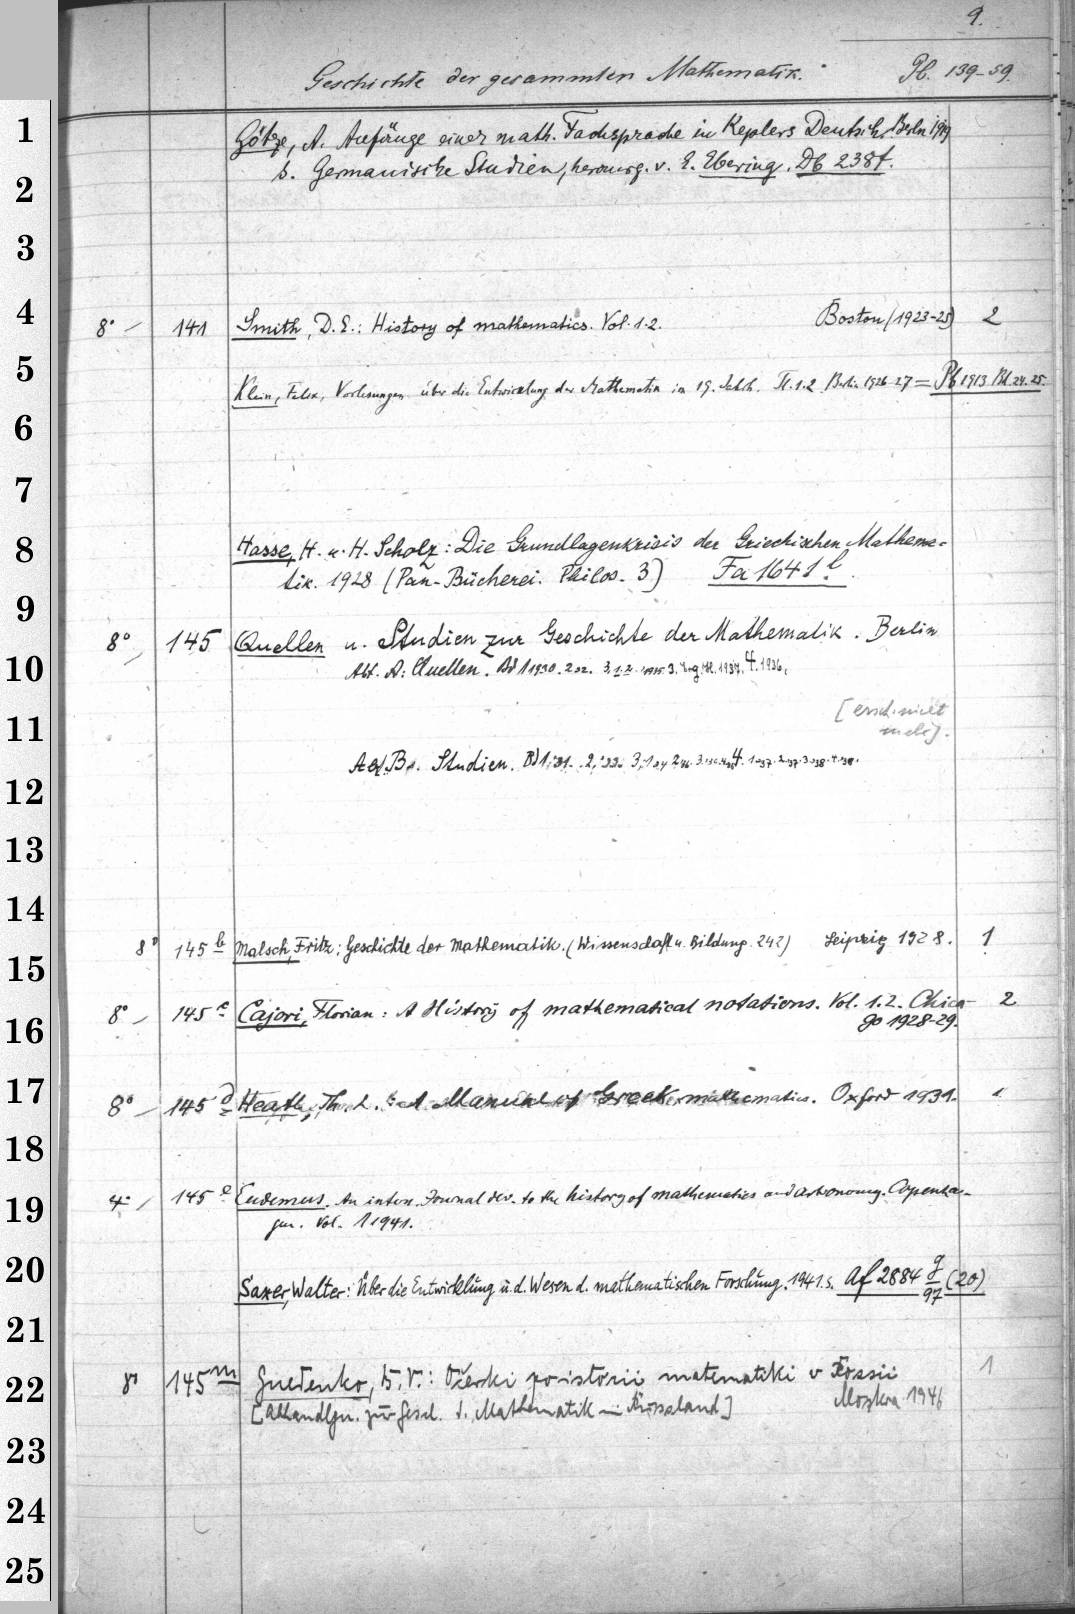 9.
Geschichte der gesammten Mathematik. Pb. 139-59.
1
Götze, A. Anfänge einer math. Fachsprache in Keplers Deutsch. Berlin 1919
2
s. Germanische Studien, herausg. v. E. Ebering. Db 238f.
3
4
8° 141 Smith, D.E.: History of mathematics. Vol. 1-2. Boston (1923-25) 2
5
Klein, Felix, Vorlesungen über die Entwicklung der Mathematik in 19. Jahrh. Tl. 1.2 Berlin 1926-27 = Pb 1913 Bd. 24. 25.
6
7
8
Hasse, H. u. H. Scholz: Die Grundlagenkrisis der Griechischen Mathema-
tik. 1928 (Pan-Bücherei. Philos. 3) Fa 1641 l
9
8° 145 Quellen u. Studien zur Geschichte der Mathematik. Berlin
10
Abt. A: Quellen. Bd 1 1930. 2 32. 3, 1-2. 1935. 4. 1936.
[ersch. nicht
11
mehr].
Abt. B. Studien. Bd 1, 31. 2, 33.
12
13
14
8° 145 b Malsch, Fritz: Geschichte der Mathematik. (Wissenschaft u. Bildung. 242) Leipzig 1928. 1
15
8° 145 c Cajori, Florian: A History of mathematical notations. Vol. 1.2. Chica- 2
16
go 1928-29.
17
8° 145 d Heath, Th. L.: A Manual of Greek mathematics. Oxford 1931. 1
18
4° 145 e Eudemus. An intern. Journal dev. to the history of mathematics and astronomy. Copenha-
19
gen. Vol. 1 1941.
20
Saxer, Walter: Über die Entwicklung u. d. Wesen d. mathematischen Forschung. 1941. s. Af 2884 g/97 (20)
21
8° 145 m Gnedenko, B. V.: Očerki po istorii matematiki v Rossii 1
22
[Abhandlgn. zur Gesch. d. Mathematik in Russland] Moskva 1946
23
24
25